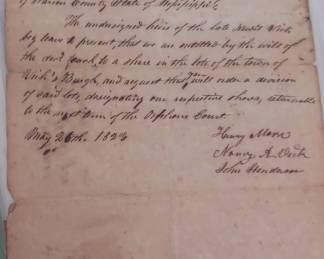 of Warren County State of Mississippi.
The undersigned heirs of the late Newit Vick
beg leave to present, that we are entitled by the will of
the dec'd, each, to a share in the lots of the town of
Vick's Burgh, and request that will order a division
of said lots, designating our respective shares, returnable
to the next term of the Orphans Court.
May 26th. 1823
Henry Morse
Nancy A. Vick
John Henderson